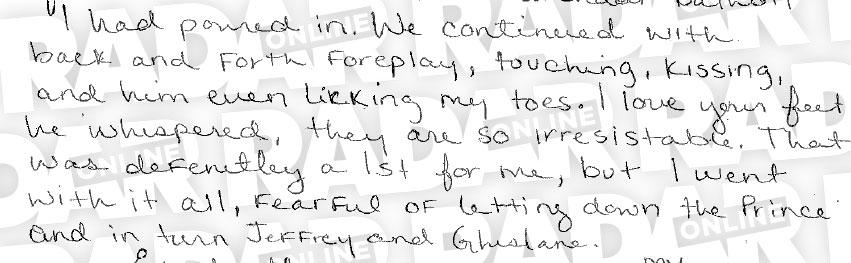 "I had poured in. We continued with
back and Forth Foreplay, touching, kissing,
and him even licking my toes. I love your feet
he whispered, they are so irresistable. That
was defenitley a 1st for me, but I went
with it all, Fearful of letting down the Prince
and in turn Jeffrey and Ghislane.
RADAR ONLINE